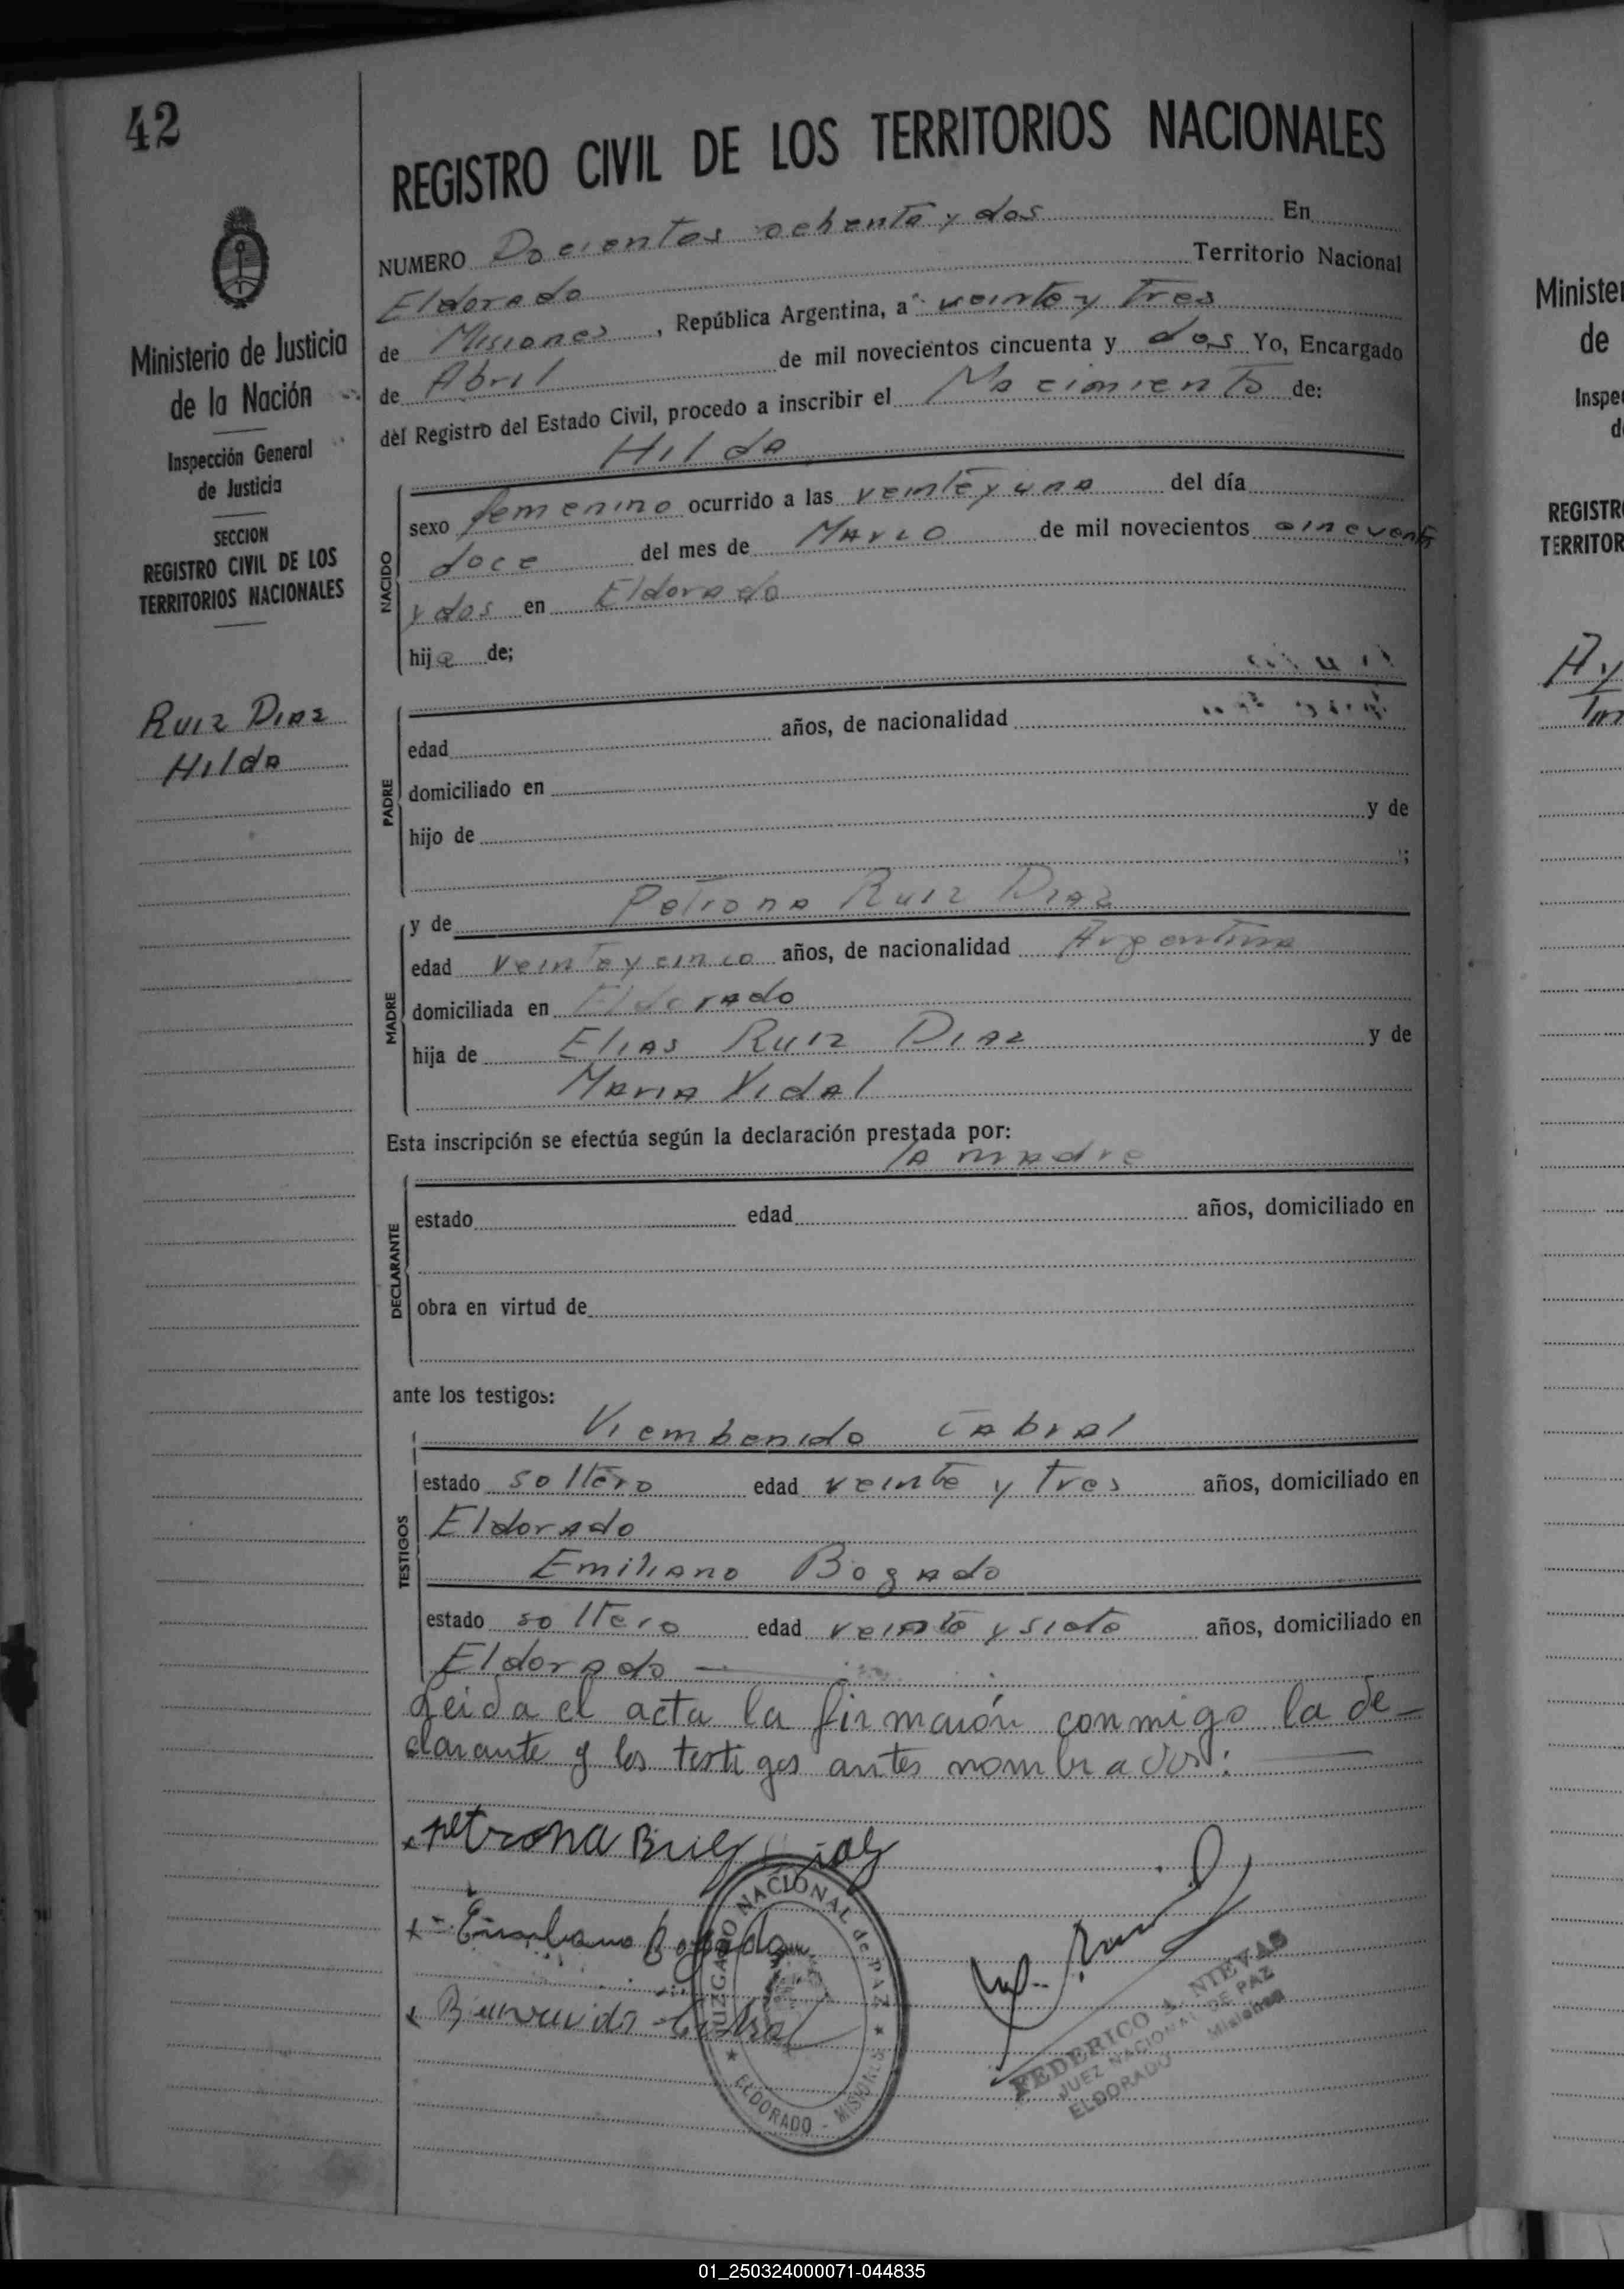 42
Ministerio de Justicia
de la Nación
Inspección General
de Justicia
SECCION
REGISTRO CIVIL DE LOS
TERRITORIOS NACIONALES
Ruiz Diaz
Hilda
REGISTRO CIVIL DE LOS TERRITORIOS NACIONALES
NUMERO Docientos ochenta y dos En
Eldorado Territorio Nacional
de Misiones, República Argentina, a veinte y Tres
de Abril de mil novecientos cincuenta y dos Yo, Encargado
del Registro del Estado Civil, procedo a inscribir el Nacimiento de:
Hilda
NACIDO
sexo femenino ocurrido a las veinte y una del día
doce del mes de Marzo de mil novecientos cincuenta
y dos en Eldorado
hija de;
PADRE
edad años, de nacionalidad
domiciliado en
hijo de y de
;
MADRE
y de Petrona Ruiz Diaz
edad veinte y cinco años, de nacionalidad Argentina
domiciliada en Eldorado
hija de Elias Ruiz Diaz y de
Maria Vidal
Esta inscripción se efectúa según la declaración prestada por:
la madre
DECLARANTE
estado edad años, domiciliado en
obra en virtud de
ante los testigos:
TESTIGOS
Viembenido Cabral
estado soltero edad veinte y Tres años, domiciliado en
Eldorado
Emiliano Bogado
estado soltero edad veinte y siete años, domiciliado en
Eldorado
Leida el acta la firmarón conmigo la de-
clarante y los testigos antes nombrados:
petrona Diaz
Emiliano Bogado
Bienvenido Cabral
JUZGADO NACIONAL de PAZ
ELDORADO - MISIONES
FEDERICO J. NIEVAS
JUEZ NACIONAL DE PAZ
ELDORADO Misiones
Minister
de
Inspe
d
REGISTR
TERRITOR
01_250324000071-044835